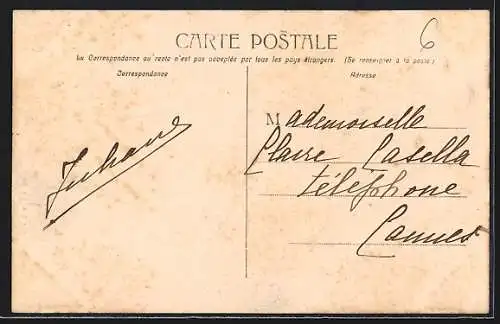 CARTE POSTALE
6
La Correspondance au recto n'est pas acceptée par tous les pays étrangers. (Se renseigner à la poste)
Correspondance
Adresse
Mademoiselle
Claire Casella
téléphone
Cannes